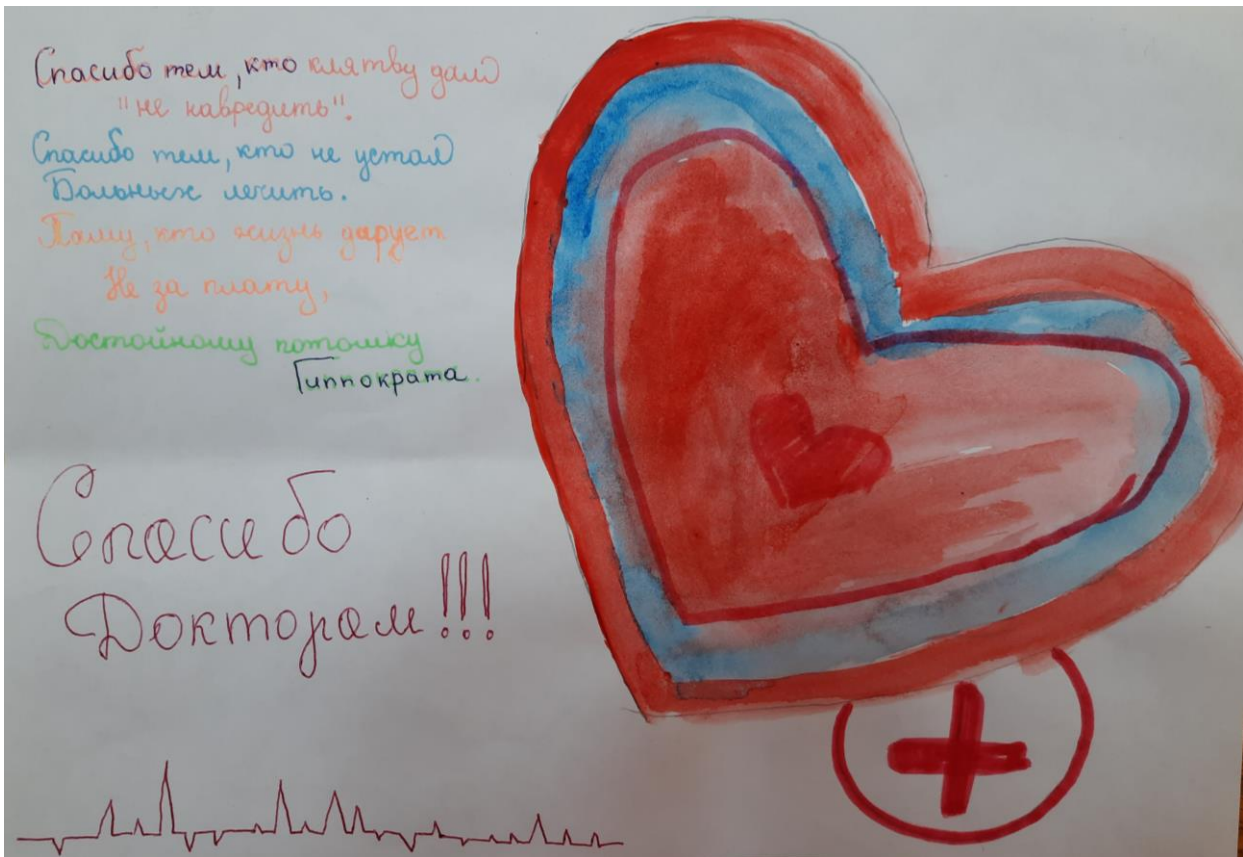 Спасибо тем, кто клятву дал
"не навредить".
Спасибо тем, кто не устал
Больных лечить.
Тому, кто жизнь дарует
Не за плату,
Достойному потомку
Гиппократа.
Спасибо
Докторам!!!